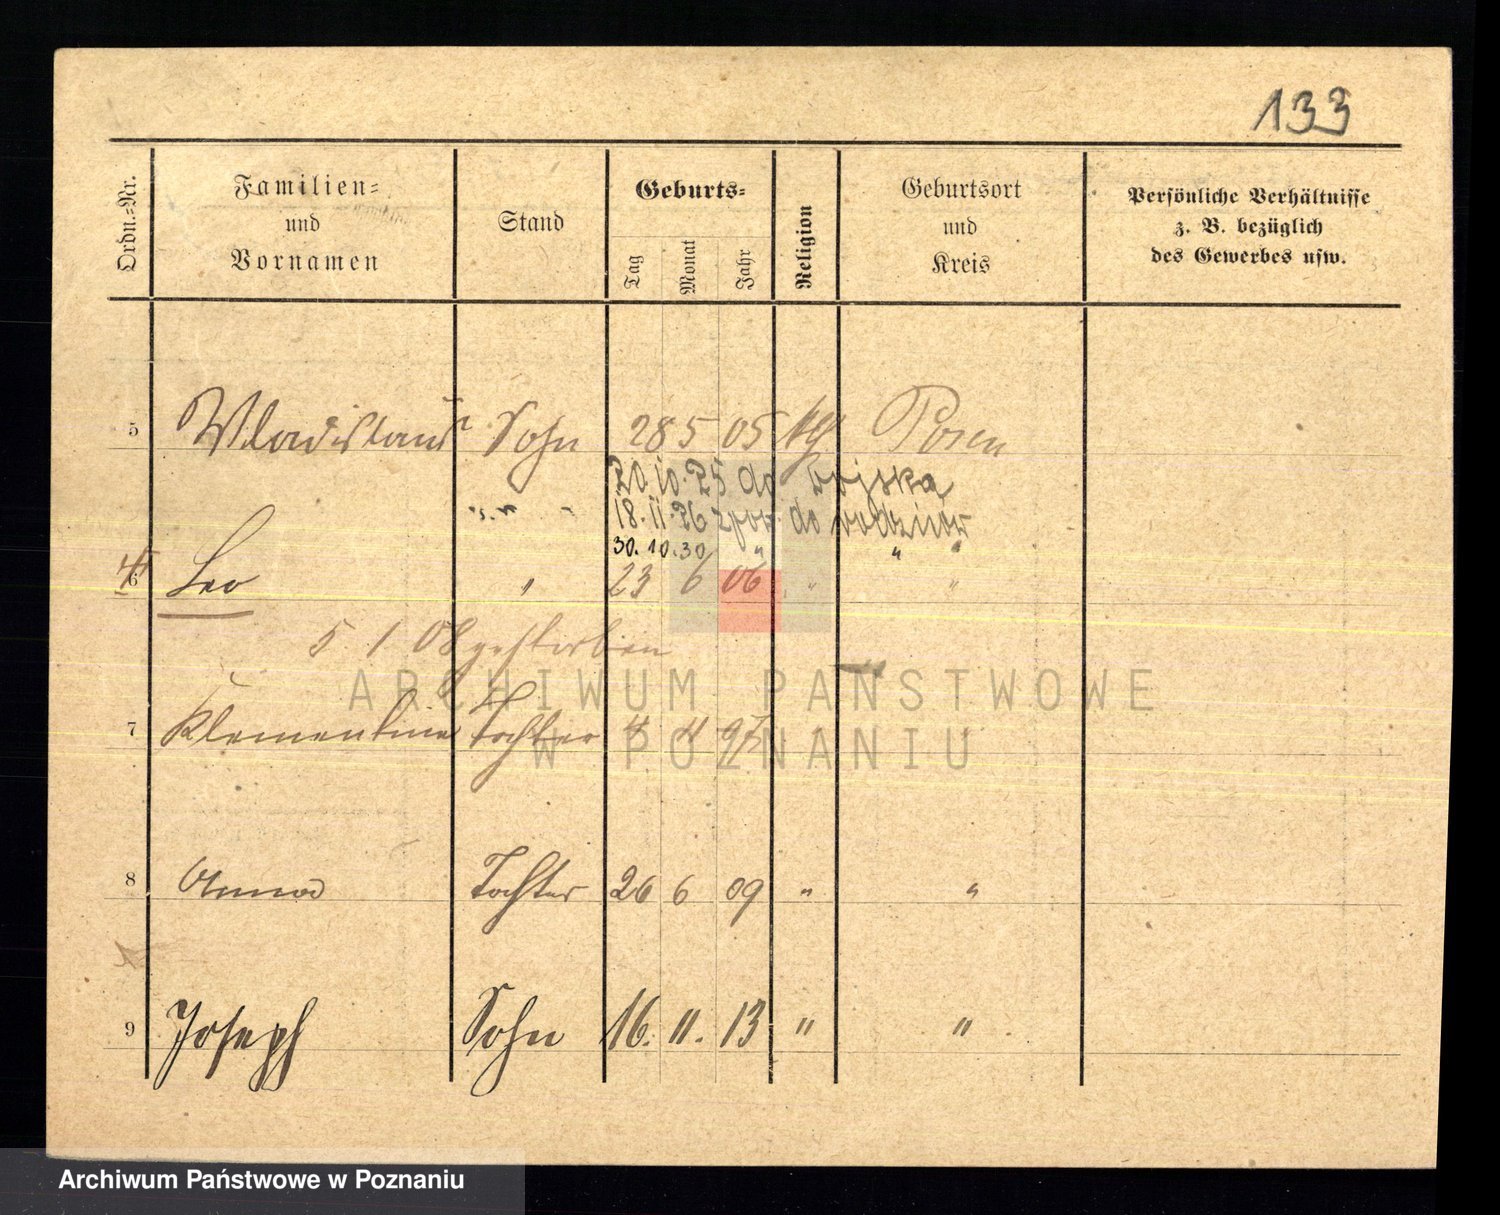 133
Ordn.=Nr.
Familien=
und
Vornamen
Stand
Geburts=
Tag
Monat
Jahr
Religion
Geburtsort
und
Kreis
Persönliche Verhältnisse
z. B. bezüglich
des Gewerbes usw.
5 Wladislaus Sohn 28 5 05 Posen
20.10.25 do wojska
18.11.26 zpow. do
30.10.30 " " "
6 Leo " 23 6 06 " "
5 1 08 gestorben
7 Klementine Tochter 4 "
8 Anna Tochter 26 6 09 " "
9 Joseph Sohn 16. 11. 13 " "
ARCHIWUM PAŃSTWOWE
W POZNANIU
Archiwum Państwowe w Poznaniu